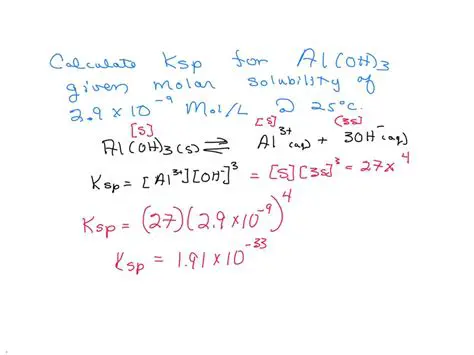 Calculate Ksp for Al(OH)3
given molar solubility of
2.9 x 10⁻⁹ Mol/L @ 25°C.
[S] [S] (3S)
Al(OH)3(s) ⇌ Al³⁺(aq) + 3OH⁻(aq)
Ksp = [Al³⁺][OH⁻]³ = [S][3S]³ = 27x⁴
Ksp = (27)(2.9 x 10⁻⁹)⁴
Ksp = 1.91 x 10⁻³³